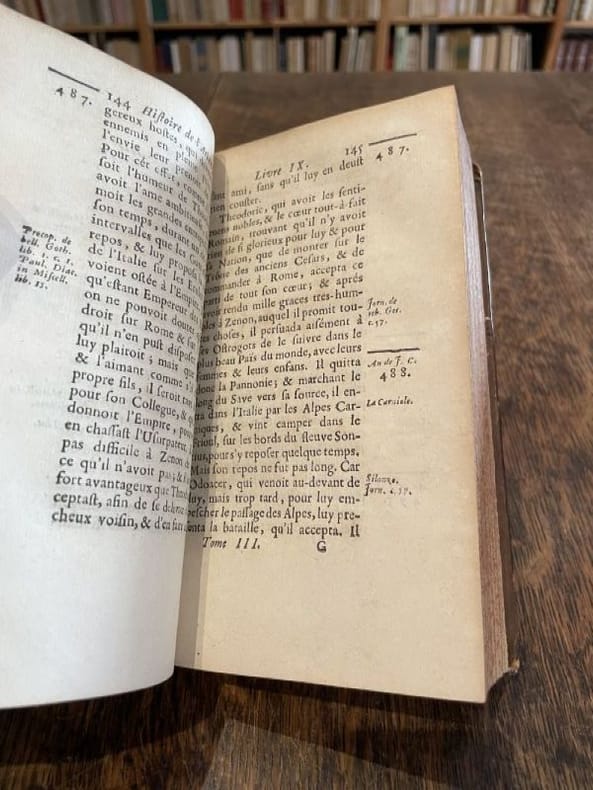 487.
144 Histoire de
gereux hostes, qui
ennemis en
l'envie leur
Pour cét effet, comme
soit l'humeur de
avoit l'ame ambitieuse
moit les grandes
son temps, durant
intervalles que les
repos, & luy proposa
de l'Italie sur les
voient ostée à l'Empire
qu'estant Empereur
on ne pouvoit douter
droit sur Rome & sur
qu'il n'en pust disposer
luy plairoit; mais que
& l'aimant comme s'il
propre fils, il seroit
pour son Collegue, &
donnoit l'Empire,
en chassast l'Usurpateur.
pas difficile à Zenon de
ce qu'il n'avoit pas; &
fort avantageux que
ceptast, afin de se
cheux voisin, & d'en faire
Procop. de
bell. Goth.
lib. 1. c. 1.
Paul. Diac.
in Miscell.
lib. 15.
Livre IX. 145
487.
ami, sans qu'il luy en deust
rien couster.
Theodoric, qui avoit les senti-
mens nobles, & le cœur tout-à-fait
Romain, trouvant qu'il n'y avoit
rien de si glorieux pour luy & pour
sa Nation, que de monter sur le
Trône des anciens Cesars, & de
commander à Rome, accepta ce
parti de tout son cœur; & aprés
avoir rendu mille graces tres-hum-
bles à Zenon, auquel il promit tou-
tes choses, il persuada aisément à
ses Ostrogots de le suivre dans le
plus beau Païs du monde, avec leurs
femmes & leurs enfans. Il quitta
donc la Pannonie; & marchant le
long du Save vers sa source, il en-
tra dans l'Italie par les Alpes Car-
niques, & vint camper dans le
Frioul, sur les bords du fleuve Son-
tius, pour s'y reposer quelque temps.
Mais son repos ne fut pas long. Car
Odoacer, qui venoit au-devant de
luy, mais trop tard, pour luy em-
pescher le passage des Alpes, luy pre-
senta la bataille, qu'il accepta. Il
Jorn. de
reb. Get.
c. 57.
An de J. C.
488.
La Carniole.
Jorn. c. 57.
Tome III. G